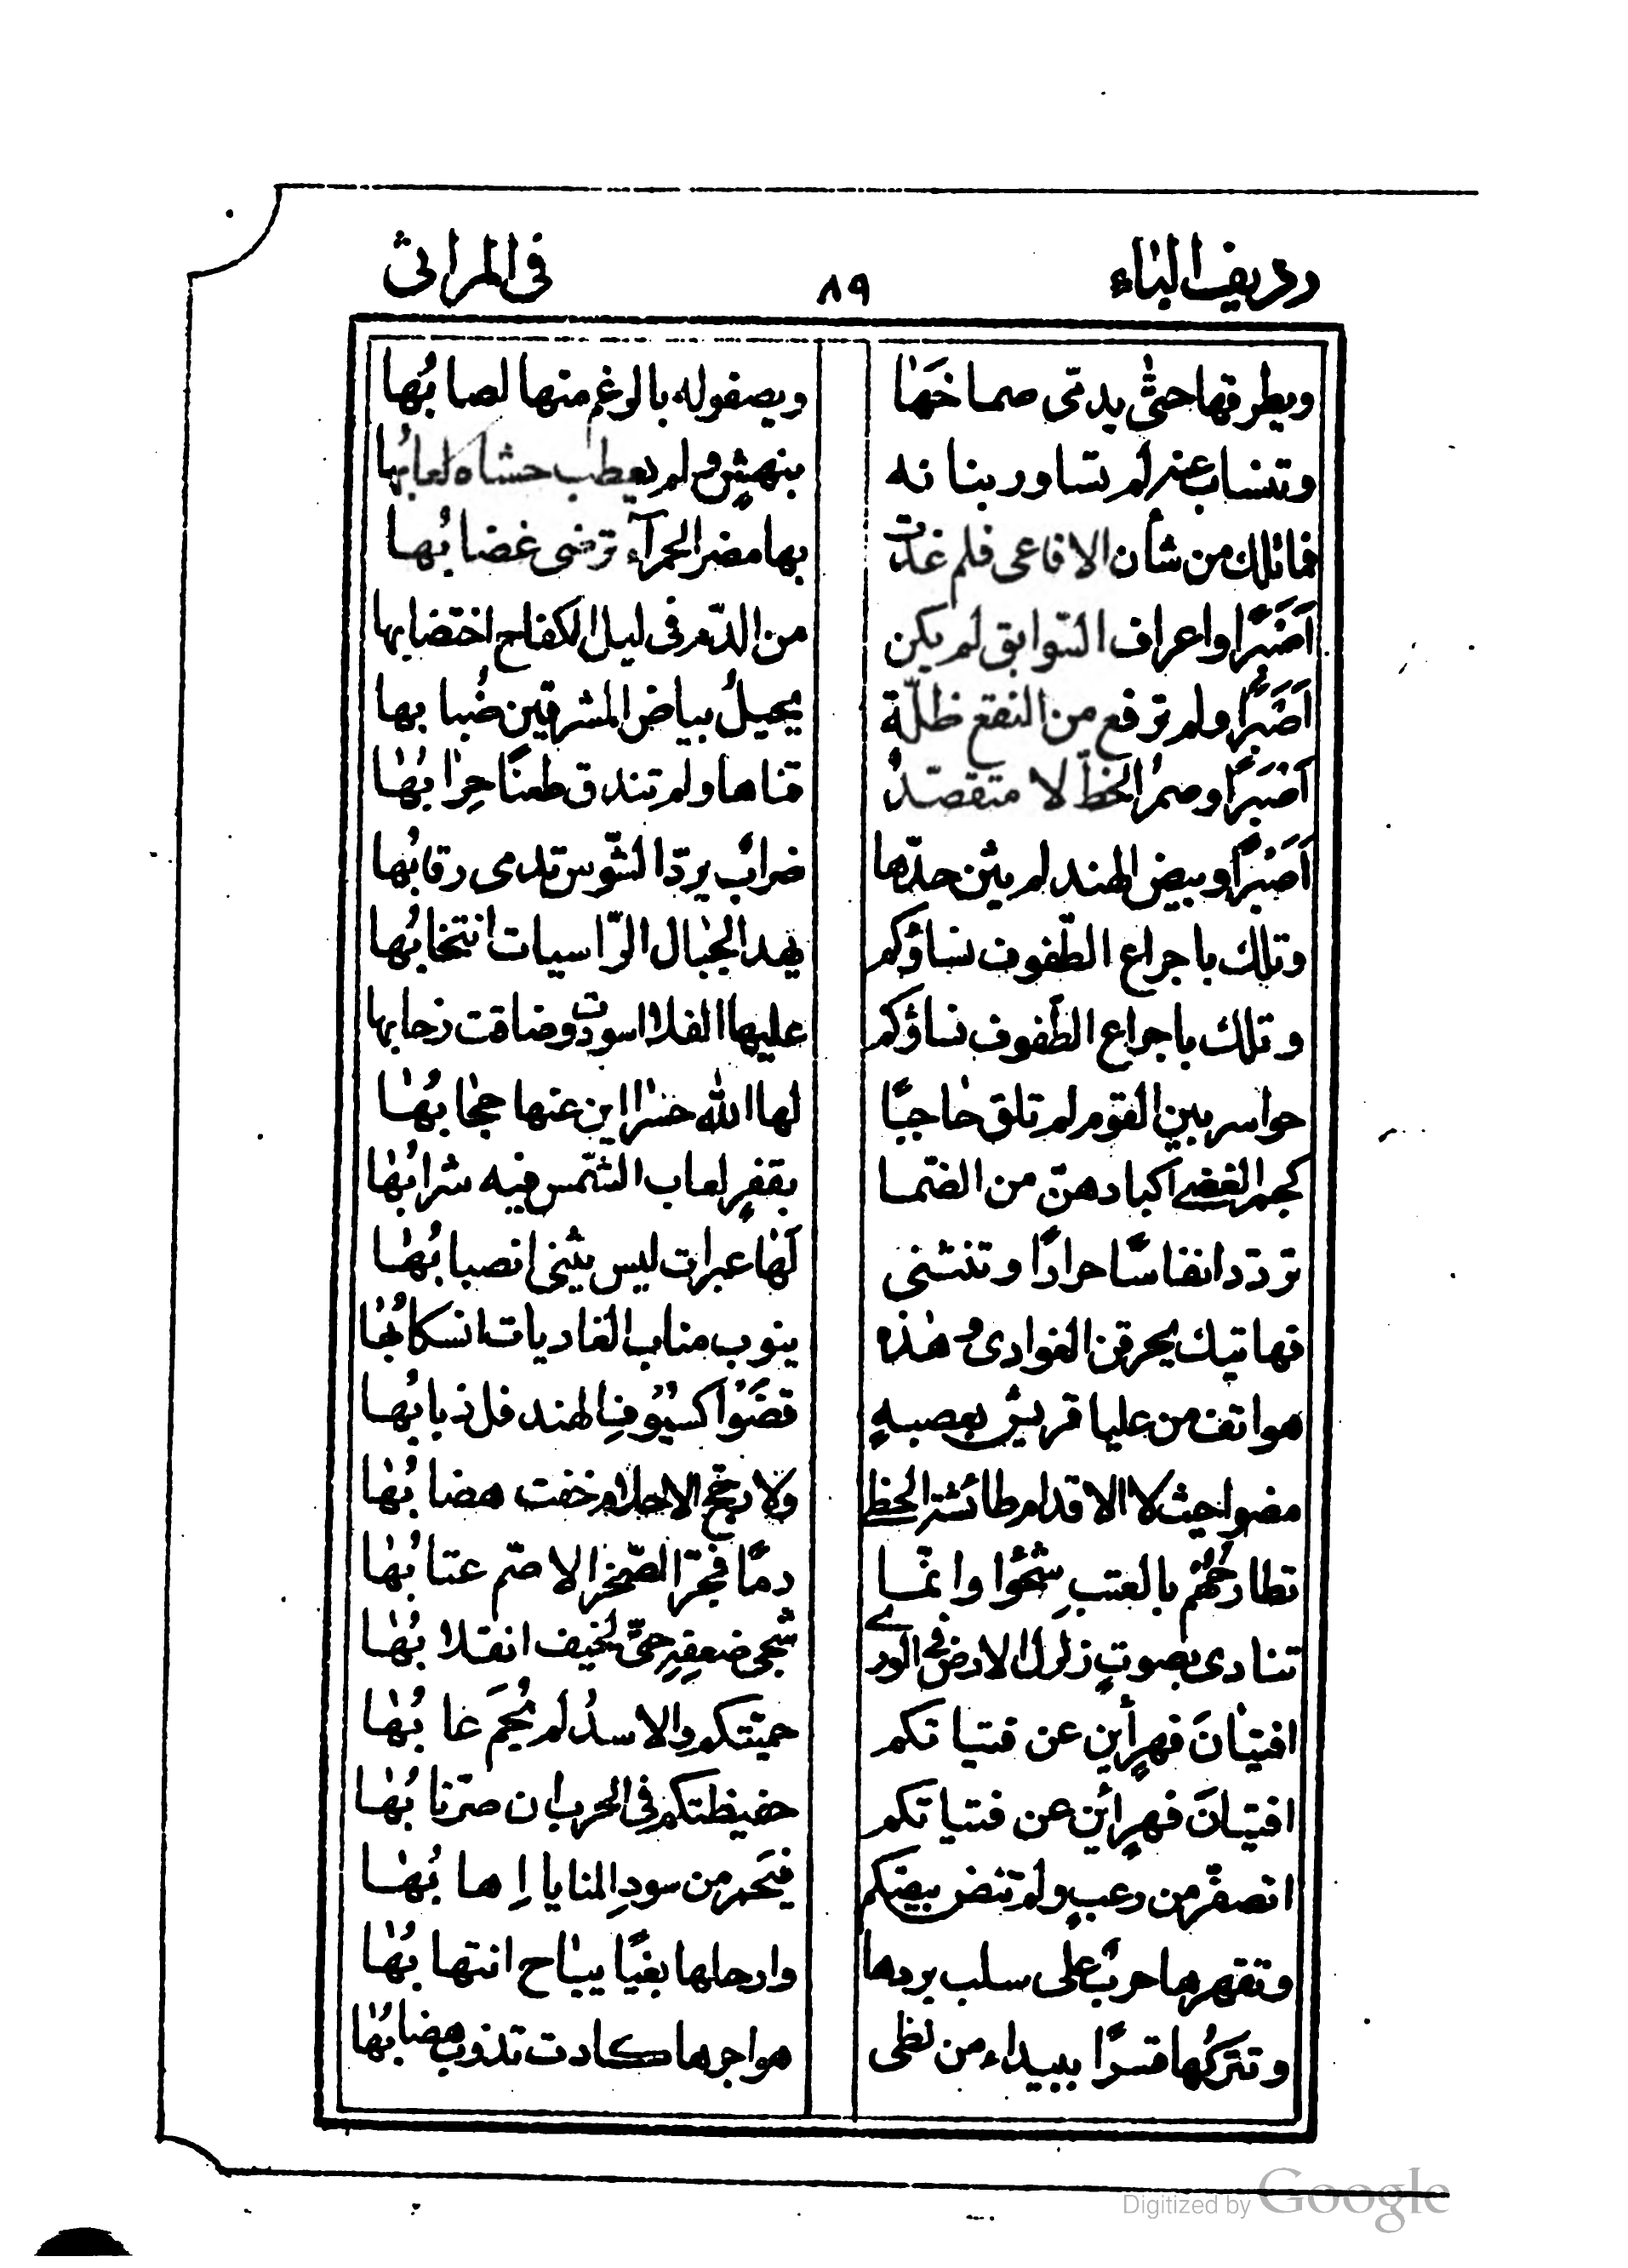 ردیف الباء ٨٩ فی المراثی
ويطرقها حتّى يدمّى صماخَها ويصفو له بالرغم منها لصابُها
وتنساب عنه لم تساور بنانه بنهشٍ ولم يعطب حشاه لعابُها
فما تلك من شأن الافاعى فلم غدت بها مضر الحمرآء ترضى غضابُها
أصَبرًا واعراف السّوابق لم يكن من الدّم فى ليل الكفاح اختضابها
أصَبرًا ولم ترفع من النقع ظلّة يحيلُ بياض المشرقين ضُبابها
أصَبرًا وصمرُ الخطّ لا متقصّدٌ قناها ولم تندق طعنًا حِرابُها
أصَبرًا وبيض الهند لم يثن حدّها ضرابٌ يردّ الشّوس تدمى رقابُها
وتلك باجراع الطّفوف نساؤكم يهد الجبال الرّاسيات انتحابُها
وتلك باجراع الطّفوف نساؤكم عليها الفلا اسودّت وضاقت رحابها
حواسر بين القوم لم تلق حاجبًا لها الله حسرا اين عنها حجابُها
كجمر الغضى اكبادهنّ من الضّما بقفرٍ لعاب الشّمس فيه شرابُها
تردّد انفاسًا حرارًا وتنثنى لها عبرات ليس يثنى انصبابُها
فهاتيك يحرقن الغوادى وهذه ينوب مناب الغاديات انسكابُها
هواتف من عليا قريش بعصبةٍ قضَوْا كسيُوف الهند فل ذبابُها
مضوا حيث لا الاقدام طائشة الخطى ولا رجّح الاحلام خفت هضابُها
تطارحُهُم بالعتب شجْوًا وانّما دمًا فجرّ الصّخر الاصّم عتابُها
تنادى بصوتٍ زلزل الارض فى الورى شجى ضعفِهِ حتّى لخيف انقلابُها
افتيانَ فهرٍ أين عن فتياتكم حميّتكم والاسدُ لم يُحمَ غابُها
افتيانَ فهرٍ أين عن فتياتكم حفيظتكم فى الحرب ان صرّنابُها
اتصفرّ من رعبٍ ولم تنض بيضكم فيَحمر من سودِ المنايا إهابُها
وتقهرها حربٌ على سلب بردها وارحلها بغيًا يباح انتهابُها
وتتركُها قسرًا ببيداء من لظى هواجرها كادت تذوب هضابُها
Digitized by Google